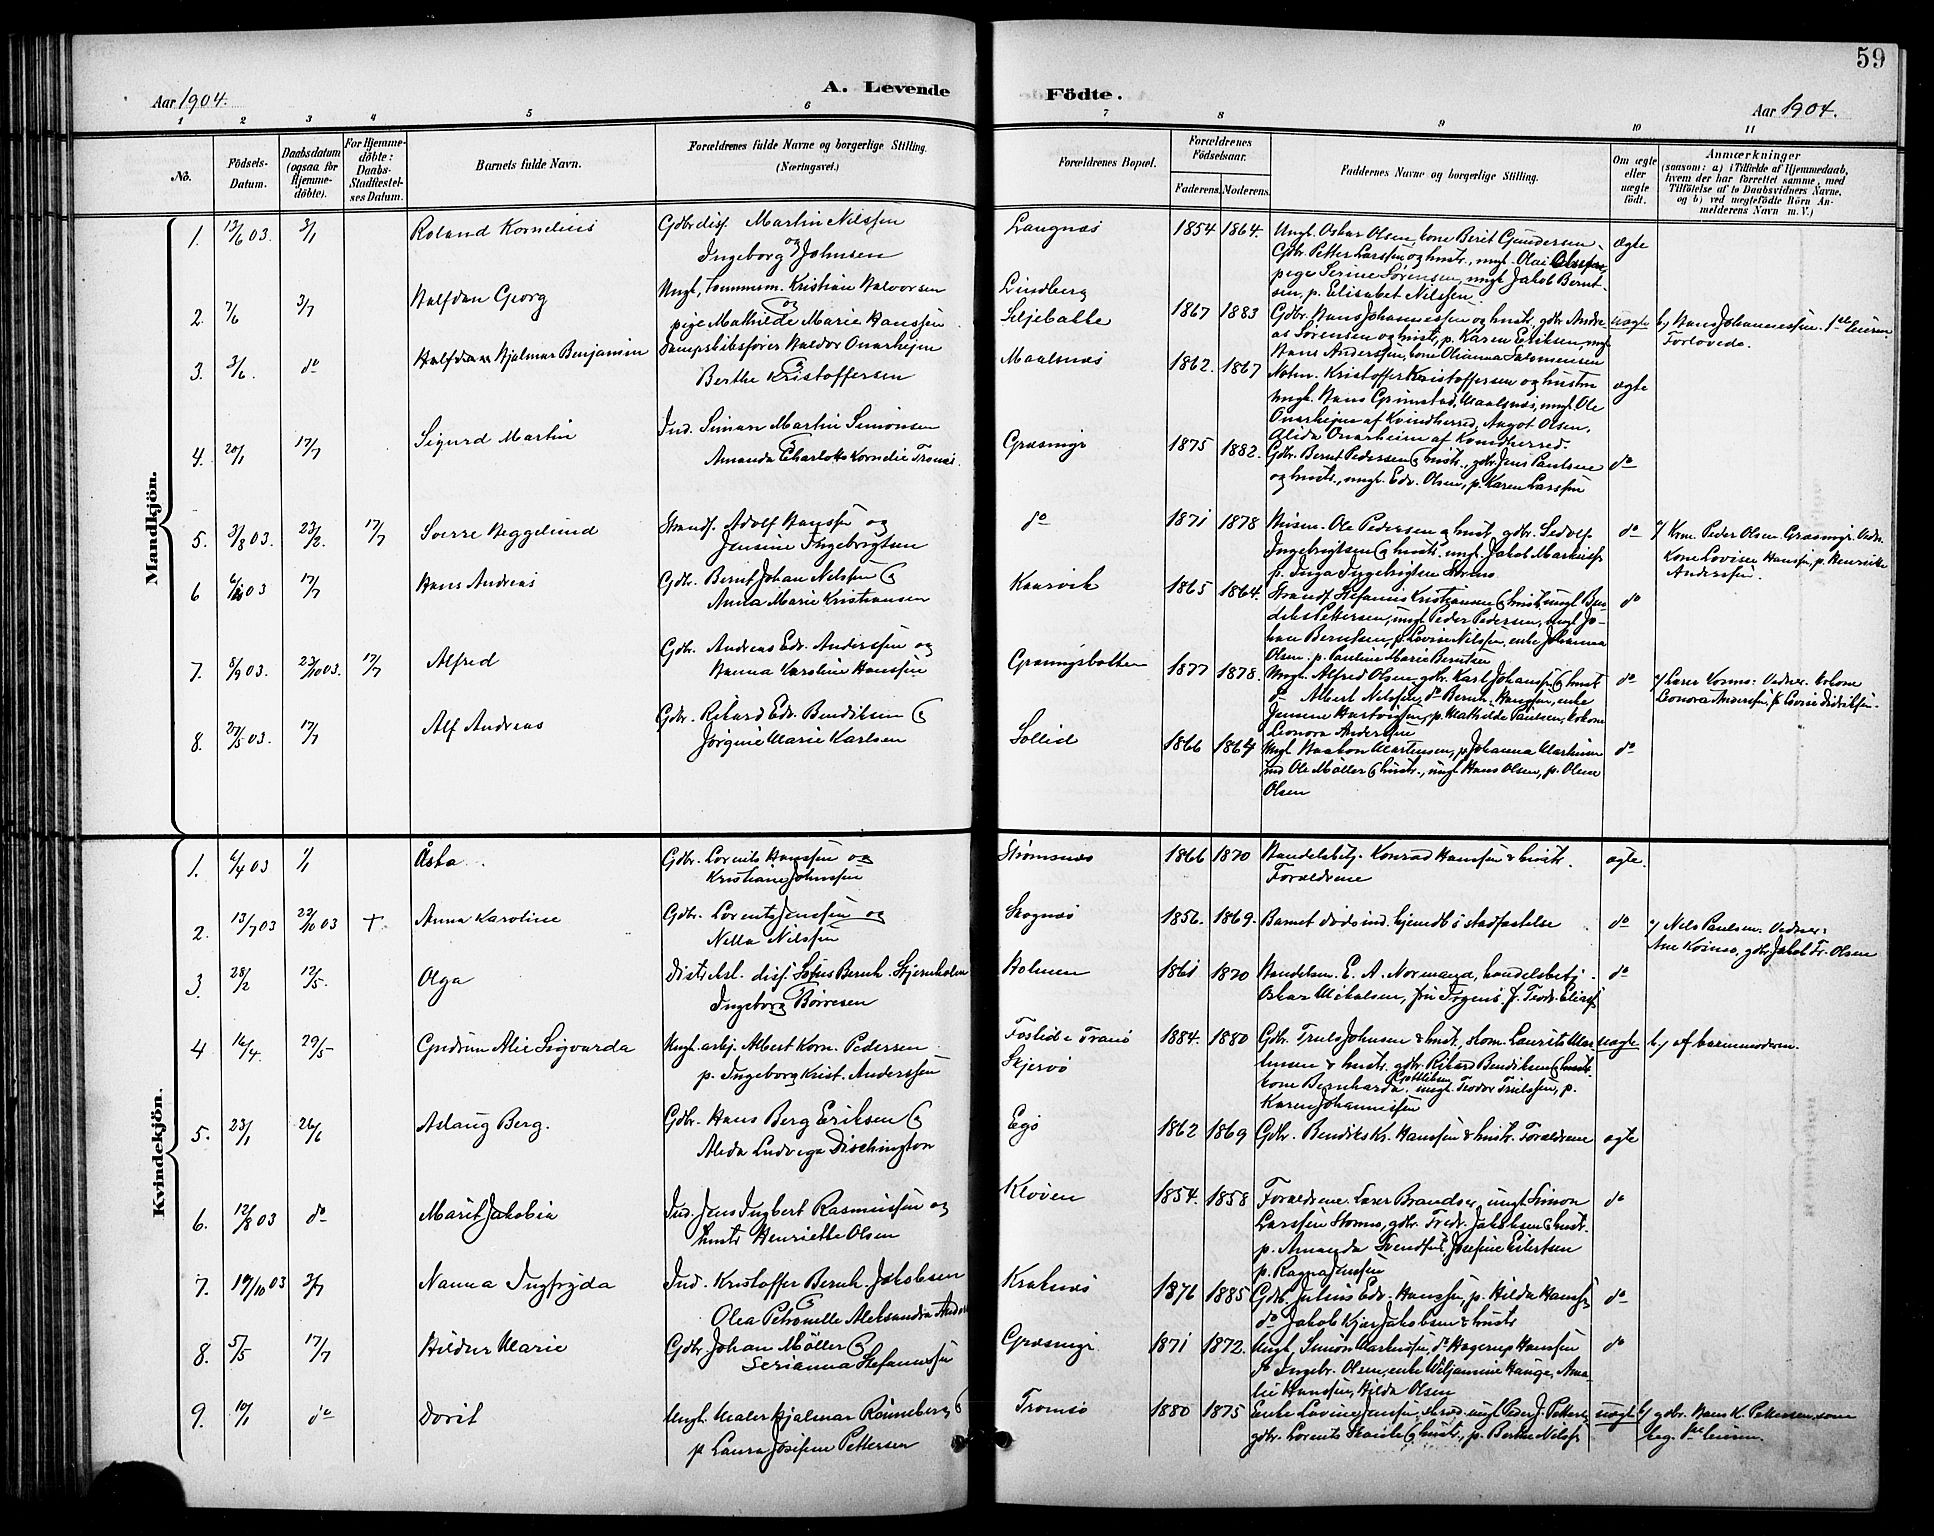 59
Aar 1904.
A. Levende
Födte.
Aar 1904.
1 2 3 4 5 6 7 8 9 10 11
No.
Födsels-Datum.
Daabsdatum (ogsaa for Hjemme-döbte).
For Hjemme-döbte: Daabs-Stadfæstel-ses Datum.
Barnets fulde Navn.
Forældrenes fulde Navne og borgerlige Stilling.
(Næringsvei.)
Forældrenes Bopæl.
Forældrenes Födselsaar.
Faderens. Moderens.
Faddernes Navne og borgerlige Stilling.
Om ægte eller uægte födt.
Anmærkninger
(saasom: a) i Tilfælde af Hjemmedaab,
hvem der har forrettet samme, med
Tilföielse af to Daabsvidners Navne.
og b) ved uægtefödte Börn An-
melderens Navn m. V.)
Mandkjön.
1. 13/6 03. 3/1 Roland Kornelius
Gdbr.dis. Martin Nilssen
og
Ingeborg Johnsen
Langnæs 1854 1864.
Ungl. Oskar Olsen, kone Berit Gundersen,
Gdbr. Petter Larssen og hustr., ungl. Olai
pige Serine Sørensen, ungl. Jakob Bernt-
sen, p. Elisabet Nilssen
ægte
2. 7/6 3/7 Halfdan Georg
Ungl. tømmerm. Kristian Halvorsen
og
pige Mathilde Marie Hanssen
Lindberg
Seljebakke 1867 1883
Gdbr. Hans Johannessen og hustr., gdbr. Andre-
as Sørensen og hustr., p. Karen Eriksen, ungl.
Hans Anderssen, kone Olianna Salomonsen
uægte b) Hans Johannessen. 1ste leierm.
Forlovede.
3. 3/6. do Halfdan Hjalmar Benjamin
Dampskibsfører Haldor Onarheim
og
Berthe Kristoffersen
Maalsnæs 1862. 1867
Notm. Kristoffer Kristoffersen og hustru
ungl. Hans Grimstad, Maalsnæs, ungl. Ole
Onarheim af Kvindherred, Angot Olsen,
Alida Onarheim af Kvindherred.
ægte
4. 20/1 17/7 Sigurd Martin
Ind. Simon Martin Simonsen
Amanda Charlotte Kornelie Tromsø.
Græsmyr 1875 1882.
Gdbr. Bernt Pedersen & hustr., gdbr. Jens Paulsen
og hustr., ungl. Edv. Olsen, p. Karen Larssen
do
5. 31/8 03. 23/2. 17/7 Sverre Heggelund
Strands. Adolf Hanssen og
Jensine Ingebrigtsen
do 1871 1878
Ole Pedersen og hustr. gdbr. Sedolf
Ingebrigtsen & hustr., ungl. Jakob Markuss.
p. Inga Ingebrigtsen
do a) Kone Peder Olsen Græsmyr. Vidn.
Kone Lovise Hanssen, p. Henrikke
Anderssen.
6 03 17/7 Hans Andreas
Gdbr. Bernt Johan Nilssen &
Anna Marie Kristiansen
Kaarvik 1865 1864.
Strands. Stefanus Kristiansen & hustr., ungl. Ben-
dik Pettersen, ungl. Peder Pedersen, ungl. Jo-
han Berntsen, p. Lovise Nilssen, enke Johanna
Olsen. p. Pauline Marie Berntsen
do
7. 8/9 03. 23/10 03. 17/7 Alfred
Gdbr. Andreas Edv. Anderssen og
Hanna Karoline Hanssen
1877 1878.
Ungl. Alfred Olsen, gdbr. Karl Johanssen & hustr.
do Albert Nilssen, do Bernh. Hanssen, enke
p. Mathilde Paulsen,
Leonora Andersen
do a) Vidner:
Leonora Anderssen, p. Lovise Didriksen.
8. 27/5 03. 17/7 Alf Andreas
Gdbr. Rikard Edv. Bendiksen &
Jørgine Marie Karlsen
Sollid 1866 1864
Ungl. Haakon Martensen, p. Johanna
ind. Ole Møller & hustr., ungl. Hans Olsen, p. Oline
Olsen
do
Kvindekjön.
1. 6/4 03 1/1 Åsta
Gdbr. Lorents Hanssen og
Kristiane Johnssen
Strømsnæs 1866 1870
Handelsbetj. Konrad Hanssen & hustr.
Forældrene
ægte.
2. 13/7 03 22/10 03 + Anna Karoline
Gdbr. Lorents Jenssen og
Nella Nilssen
Skognæs 1856. 1869.
Barnet døde ind. hjemdb's stadfæstelse
do a) Nils Paulsen. Vidner:
Ane gdbr. Jakob Fr. Olsen
3. 28/2 12/5. Olga
Distr.læge disf. Sofus Bernh. Stjernholm
Ingeborg Børresen
Holmen 1861 1870
Handelsm. E. A. Normand, handelsbetj.
Oskar Mikalsen, fru Irgens, f. Teodr. Eliass.
do
4 16/4. 29/5 Gudrun Alie Sigvarda
Ungl. arbj. Albert Korn. Pedersen
p. Ingeborg Krist. Anderssen
Foslid i Tranø
Skjervø 1884. 1880
Gdbr. Truls Johnsen & hustr., skom. Laurits Mar-
tinsen & hustr. gdbr. Rikard Bendiksen & hustr.
kone Bernharda ungl. Teodor Trulssen, p.
Karen Johannessen
uægte b) af barnemoderen.
5. 23/1 26/6 Aslaug Berg.
Gdbr. Hans Berg Eriksen &
Alida Ludviga Dischington
Egø 1862 1869
Gdbr. Bendiks Kr. Hanssen & hustr. Forældrene
ægte
6. 12/8 03 do Marit Jakobia
Ind. Jens Ingbert Rasmussen og
hustr. Henriette Olsen
Kløven 1854. 1858
Forældrene. Laser Brandsæ, ungl. Simon
Larssen gdbr. Fredr. Jakobsen & hustr.
p. Amanda Svends., Josefine Eilertsen
p. Ragna Jenssen
do
7. 19/10 03 3/7 Nanna Ingfryda
Ind. Kristoffer Bernh. Jakobsen
&
Olea Petronelle Aleksandra
Kraknæs 1876 1885
Gdb. Julius Edv. Hanssen, p. Hilda Hanss.
do Jakob Kjær Jakobsen & hustr.
do
8. 5/5 17/7 Hildur Marie
Gdbr. Johan Møller &
Serianna Stefanussen
Græsmyr 1871 1872.
Ungl. Simon Markussen, do Hagerup Hanssen
do Ingebr. Olsen, enke Wiljamine Hauge, Ama-
lie Hanssen, Hilda Olsen
do
9. 10/1 do Dorit
Ungl. Maler Hjalmar Rønneberg &
p. Laura Josefine Pettersen
Tromsø 1880 1875
Enke Lovine Jenssen, ungl. Peder J. Petters.
gdbr. Lorents & hustr., p. Berthe Nilss.
uægte b) gdbr. Hans K. Pettersen, som
beg. 1ste leierm.